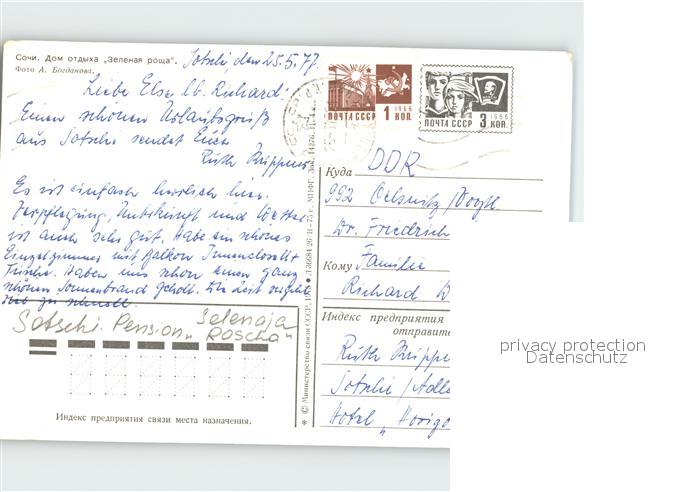 Сочи. Дом отдыха „Зеленая роща".
Фото А. Богданова.
Sotschi, den 25.5.77.
Liebe Else, lb. Richard!
Einen schönen Urlaubsgruß
aus Sotschi sendet Euch
Ruth Krippner
Es ist einfach herrlich hier.
Verpflegung, Unterkunft und Wetter
ist auch sehr gut. Habe ein schönes
Einzelzimmer mit Balkon Innenclosett
Haben uns schon einen ganz
schönen Sonnenbrand geholt. Die Zeit vergeht
zu schnell.
Sotschi. Pension „Selenaja
Roscha"
Индекс предприятия связи места назначения.
* © Министерство связи СССР, МПФГ.
ПОЧТА СССР 1 КОП. 1966
ПОЧТА СССР 3 КОП. 1966
Куда DDR
992 Oelsnitz/Vogtl
Dr. Friedrich
Кому Familie
Richard
Индекс предприятия
отправите
Ruth Krippne
Sotschi/Adle
Hotel „Horizo
privacy protection
Datenschutz